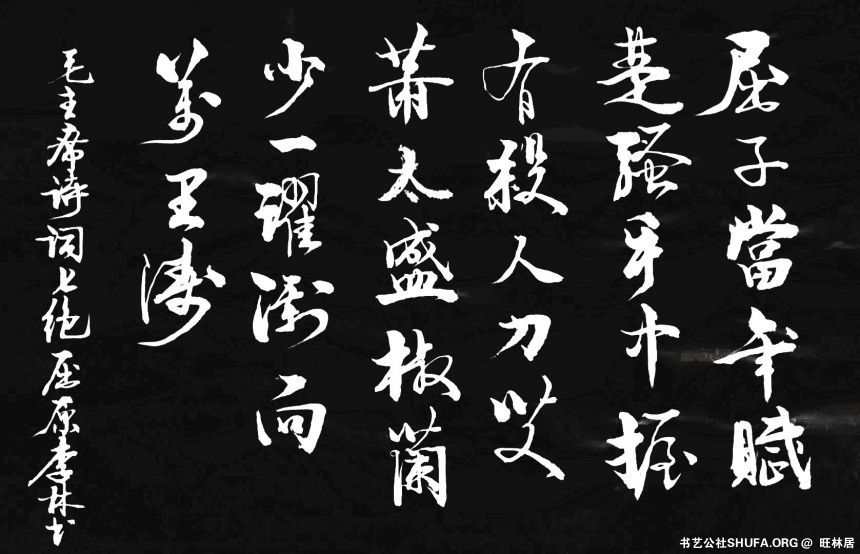 屈子當年賦
楚騷手中握
有殺人刀艾
蕭太盛椒蘭
少一躍衝向
萬里濤
毛主席诗词七绝屈原李林书
书艺公社SHUFA.ORG @ 旺林居